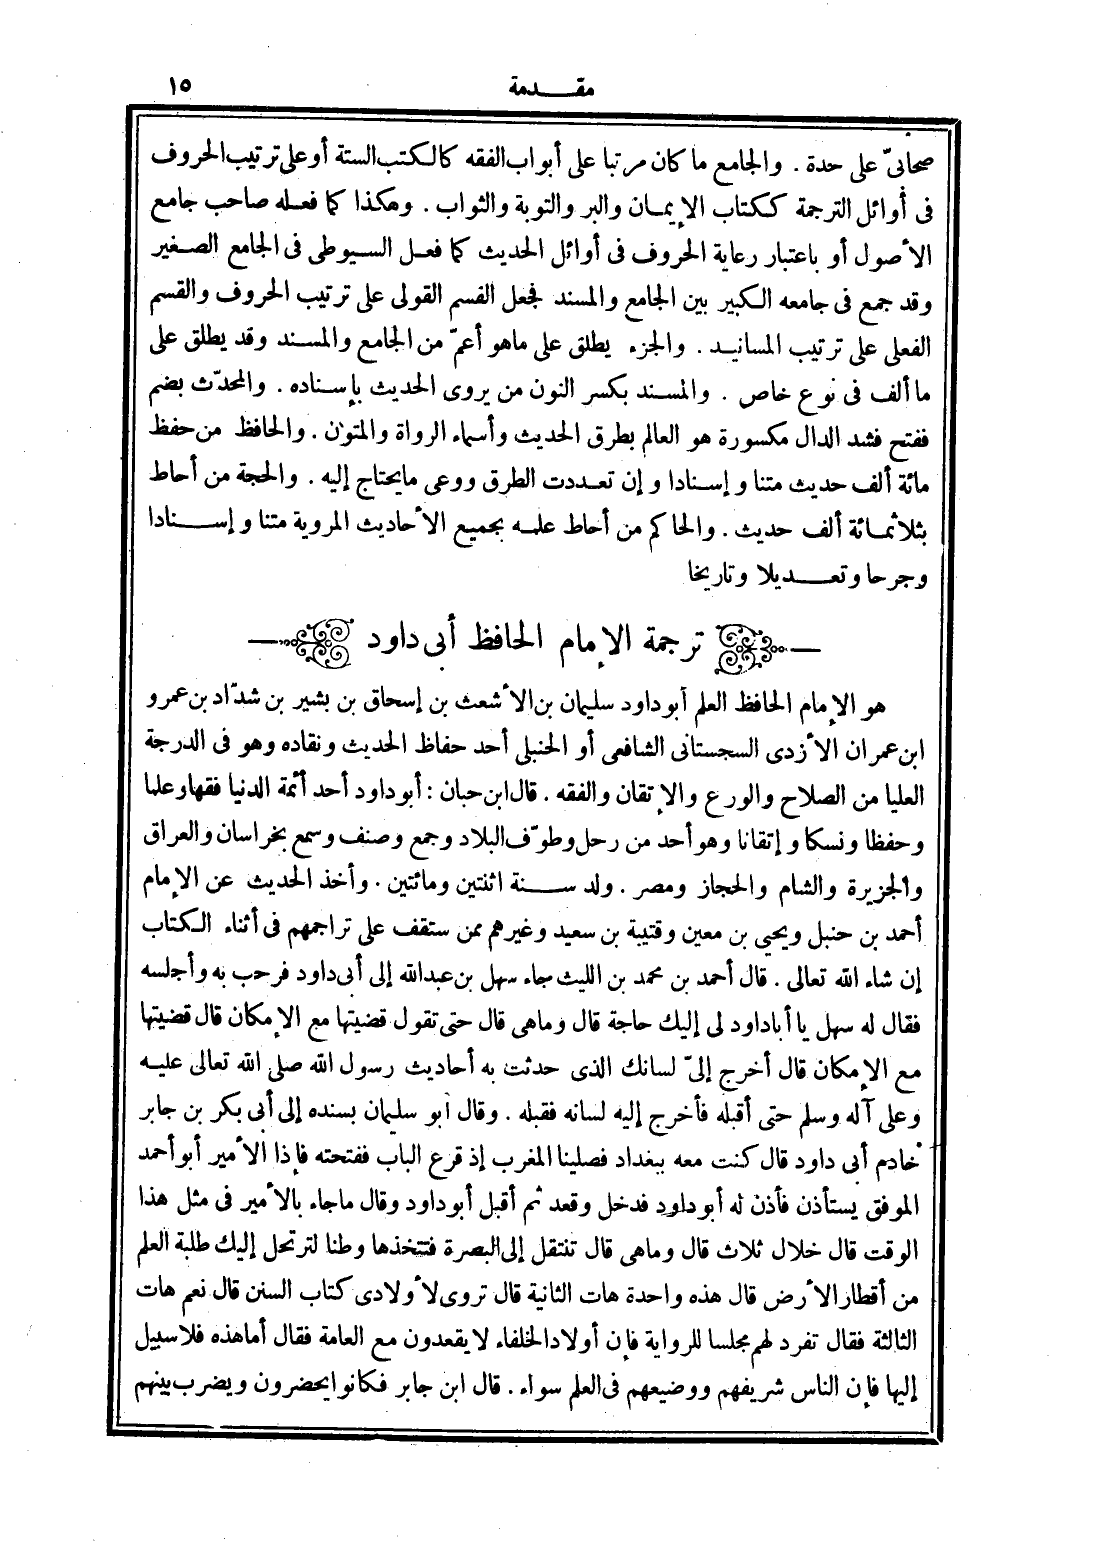 مقـــدمة ١٥
صحابىّ على حدة . والجامع ما كان مرتبا على أبواب الفقه كالكتب الستة أو على ترتيب الحروف
فى أوائل الترجمة ككتاب الإيمـان والبر والتوبة والثواب . وهكذا كما فعـله صاحب جامع
الأصول أو باعتبار رعاية الحروف فى أوائل الحديث كما فعـل السيوطى فى الجامع الصـغير
وقد جمع فى جامعه الكبير بين الجامع والمسند فجعل القسم القولى على ترتيب الحروف والقسم
الفعلى على ترتيب المسانيـد . والجزء يطلق على ماهو أعمّ من الجامع والمسـند وقد يطلق على
ما ألف فى نوع خاص . والمسـند بكسر النون من يروى الحديث بإسناده . والمحدّث بضم
ففتح فشد الدال مكسورة هو العالم بطرق الحديث وأسماء الرواة والمتون . والحافظ من حفظ
مائة ألف حديث متنا وإسـنادا وإن تعـددت الطرق ووعى مايحتاج إليه . والحجة من أحاط
بثلاثمـائة ألف حديث . والحاكم من أحاط علمـه بجميع الأحاديث المروية متنا وإســـنادا
وجرحا وتعـــديلا وتاريخا
ترجمة الإمام الحافظ أبى داود
هو الإمام الحافظ العلم أبوداود سليمان بن الأشعث بن إسحاق بن بشير بن شدّاد بن عمرو
ابن عمران الأزدى السجستانى الشافعى أو الحنبلى أحد حفاظ الحديث ونقاده وهو فى الدرجة
العليا من الصلاح والورع والإتقان والفقه . قال ابن حبان : أبوداود أحد أئمة الدنيا فقها وعلما
وحفظا ونسكا وإتقانا وهو أحد من رحل وطوّف البلاد وجمع وصنف وسمع بخراسان والعراق
والجزيرة والشام والحجاز ومصر . ولد ســـنة اثنتين ومائتين . وأخذ الحديث عن الإمام
أحمد بن حنبل ويحيى بن معين وقتيبة بن سعيد وغيرهم ممن ستقف على تراجمهم فى أثناء الكتاب
إن شاء الله تعالى . قال أحمد بن محمد بن الليث جاء سهل بن عبدالله إلى أبى داود فرحب به وأجلسه
فقال له سهل يا أباداود لى إليك حاجة قال وماهى قال حتى تقول قضيتها مع الإمكان قال قضيتها
مع الإمكان قال أخرج إلىّ لسانك الذى حدثت به أحاديث رسول الله صلى الله تعالى عليـه
وعلى آله وسلم حتى أقبله فأخرج إليه لسانه فقبله . وقال أبو سليمان بسنده إلى أبى بكر بن جابر
خادم أبى داود قال كنت معه ببغداد فصلينا المغرب إذ قرع الباب ففتحته فإذا الأمير أبوأحمد
الموفق يستأذن فأذن له أبوداود فدخل وقعد ثم أقبل أبوداود وقال ماجاء بالأمير فى مثل هذا
الوقت قال خلال ثلاث قال وماهى قال تنتقل إلى البصرة فتتخذها وطنا لترتحل إليك طلبة العلم
من أقطار الأرض قال هذه واحدة هات الثانية قال تروى لأولادى كتاب السنن قال نعم هات
الثالثة فقال تفرد لهم مجلسا للرواية فإن أولاد الخلفاء لا يقعدون مع العامة فقال أماهذه فلا سبيل
إليها فإن الناس شريفهم ووضيعهم فى العلم سواء . قال ابن جابر فكانوا يحضرون ويضرب بينهم